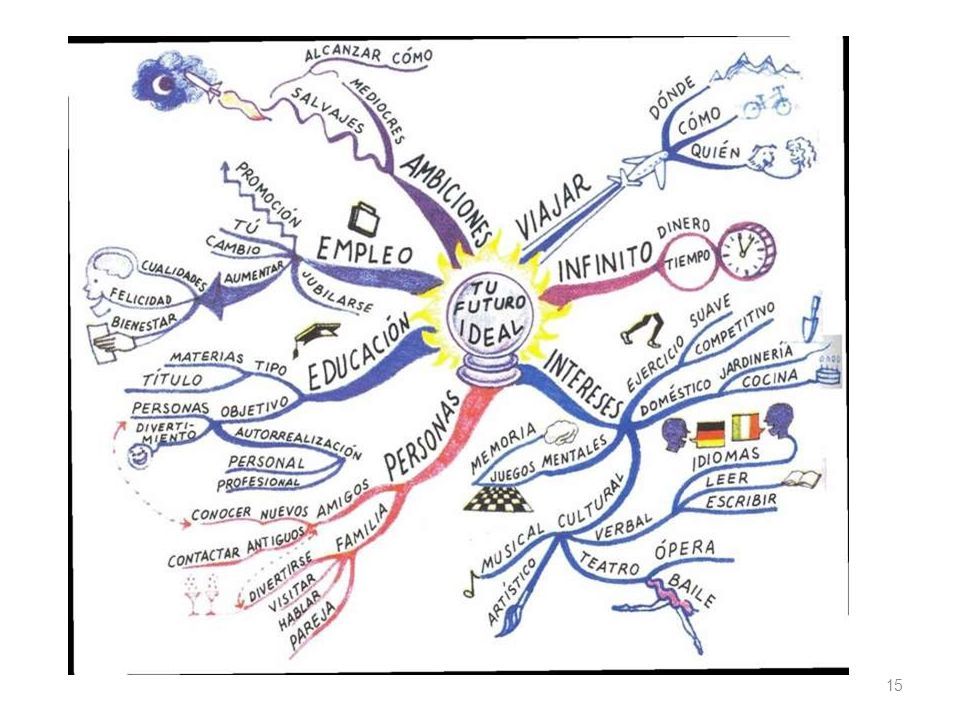 TU
FUTURO
IDEAL
AMBICIONES
MEDIOCRES
SALVAJES
ALCANZAR CÓMO
VIAJAR
DÓNDE
CÓMO
QUIÉN
INFINITO
DINERO
TIEMPO
INTERESES
EJERCICIO
SUAVE
COMPETITIVO
DOMÉSTICO
JARDINERÍA
COCINA
MEMORIA
JUEGOS MENTALES
CULTURAL
VERBAL
IDIOMAS
LEER
ESCRIBIR
TEATRO
ÓPERA
BAILE
MUSICAL
ARTÍSTICO
PERSONAS
AMIGOS
CONOCER NUEVOS
CONTACTAR ANTIGUOS
FAMILIA
DIVERTIRSE
VISITAR
HABLAR
PAREJA
EDUCACIÓN
TIPO
MATERIAS
TÍTULO
OBJETIVO
PERSONAS
DIVERTI-
MIENTO
AUTORREALIZACIÓN
PERSONAL
PROFESIONAL
EMPLEO
PROMOCIÓN
TÚ
CAMBIO
AUMENTAR
CUALIDADES
FELICIDAD
BIENESTAR
JUBILARSE
15